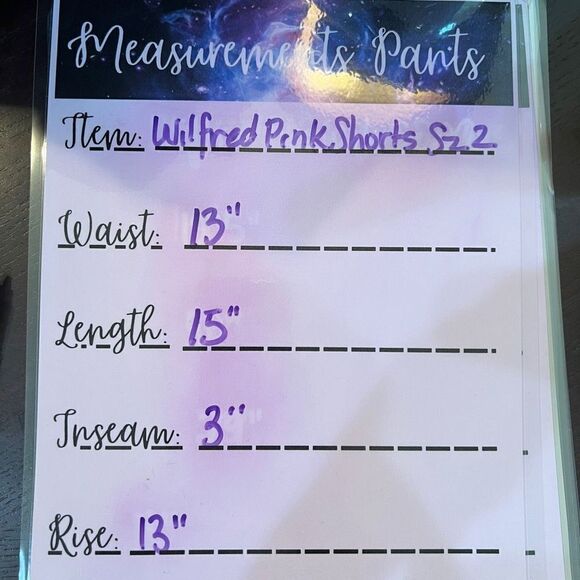 Measurements Pants
Item: Wilfred Pink Shorts Sz 2
Waist: 13"
Length: 15"
Inseam: 3"
Rise: 13"